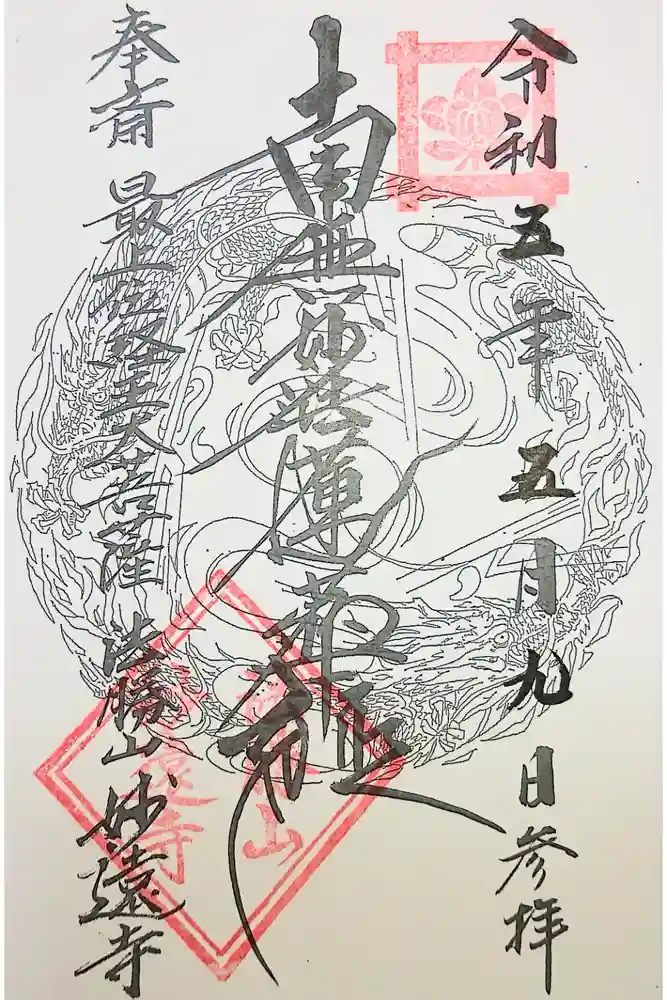 令和五年五月九日参拝
南無妙法蓮華経
奉斎 最上位経王大菩薩 法勝山 妙遠寺
山
遠寺